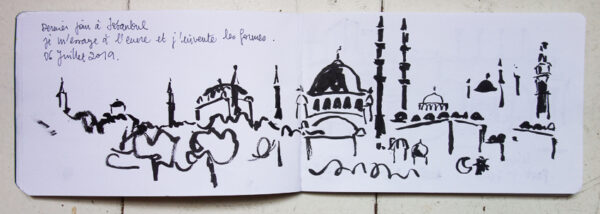 Dernier jour à Istanbul
je m'essaye à l'encre et j'invente les formes.
06 Juillet 2019.